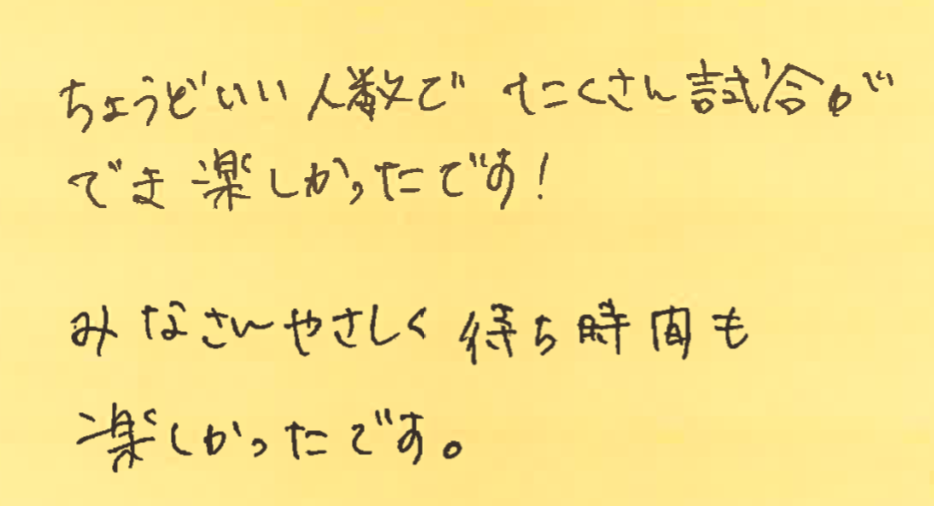 ちょうどいい人数で たくさん試合が
でき楽しかったです!
みなさんやさしく待ち時間も
楽しかったです。